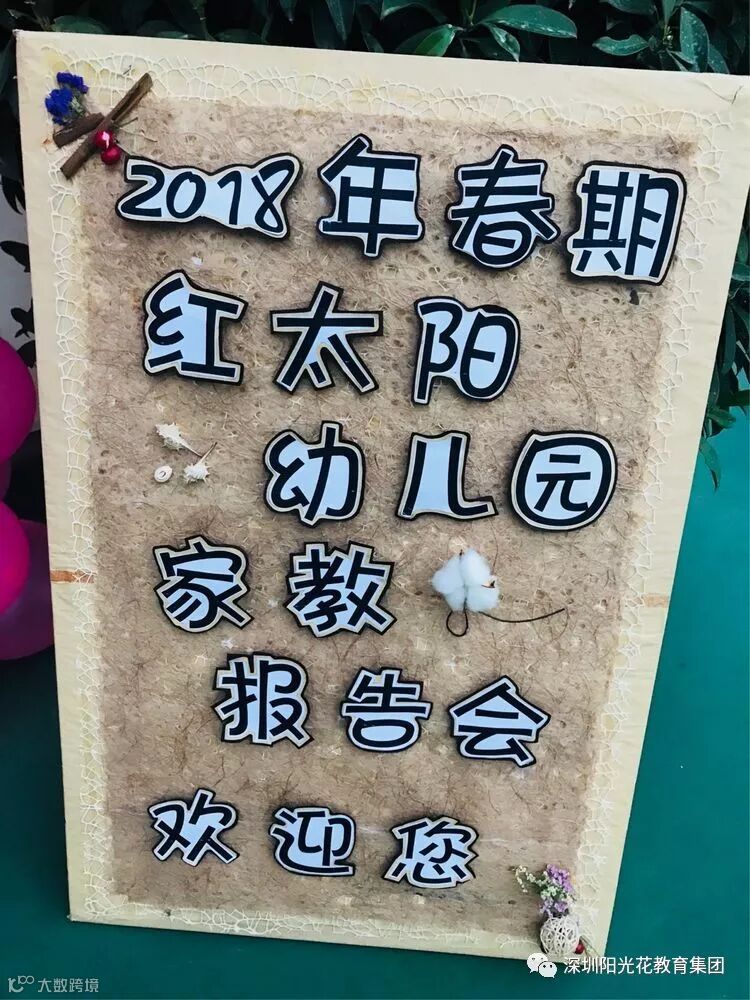 2018年春期
红太阳
幼儿园
家教
报告会
欢迎您
大数跨境
深圳阳光花教育集团